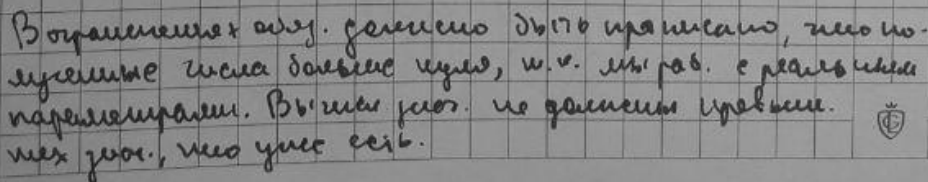 В ограничениях обяз. должно быть прописано, что по-
лученные числа больше нуля, т.к. мы раб. с реальными
параметрами. Вычисл. знач. не должны превыш.
тех знач., что уже есть.